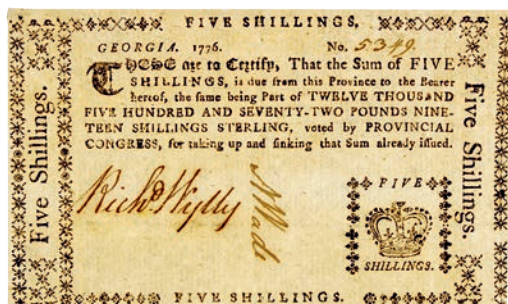 FIVE SHILLINGS.
GEORGIA. 1776. No. 5349.
THESE are to Certify, That the Sum of FIVE
SHILLINGS, is due from this Province to the Bearer
hereof, the same being Part of TWELVE THOUSAND
FIVE HUNDRED AND SEVENTY-TWO POUNDS NINE-
TEEN SHILLINGS STERLING, voted by PROVINCIAL
CONGRESS, for taking up and sinking that Sum already issued.
Five Shillings.
Five Shillings.
Richd Wylly
N Wade
FIVE
SHILLINGS.
FIVE SHILLINGS.